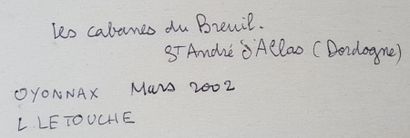 Les cabanes du Breuil.
St André d'Allas (Dordogne)
OYONNAX Mars 2002
L. LETOUCHE